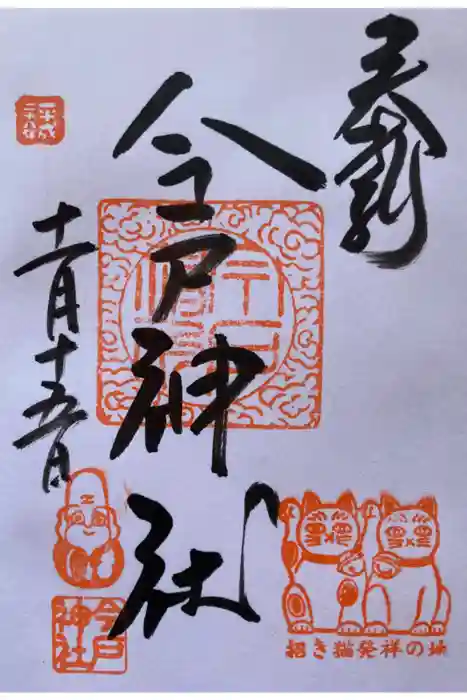 奉拝
今戸神社
平成
二十八年
十一月十五日
今戸
神社
招き猫発祥の地